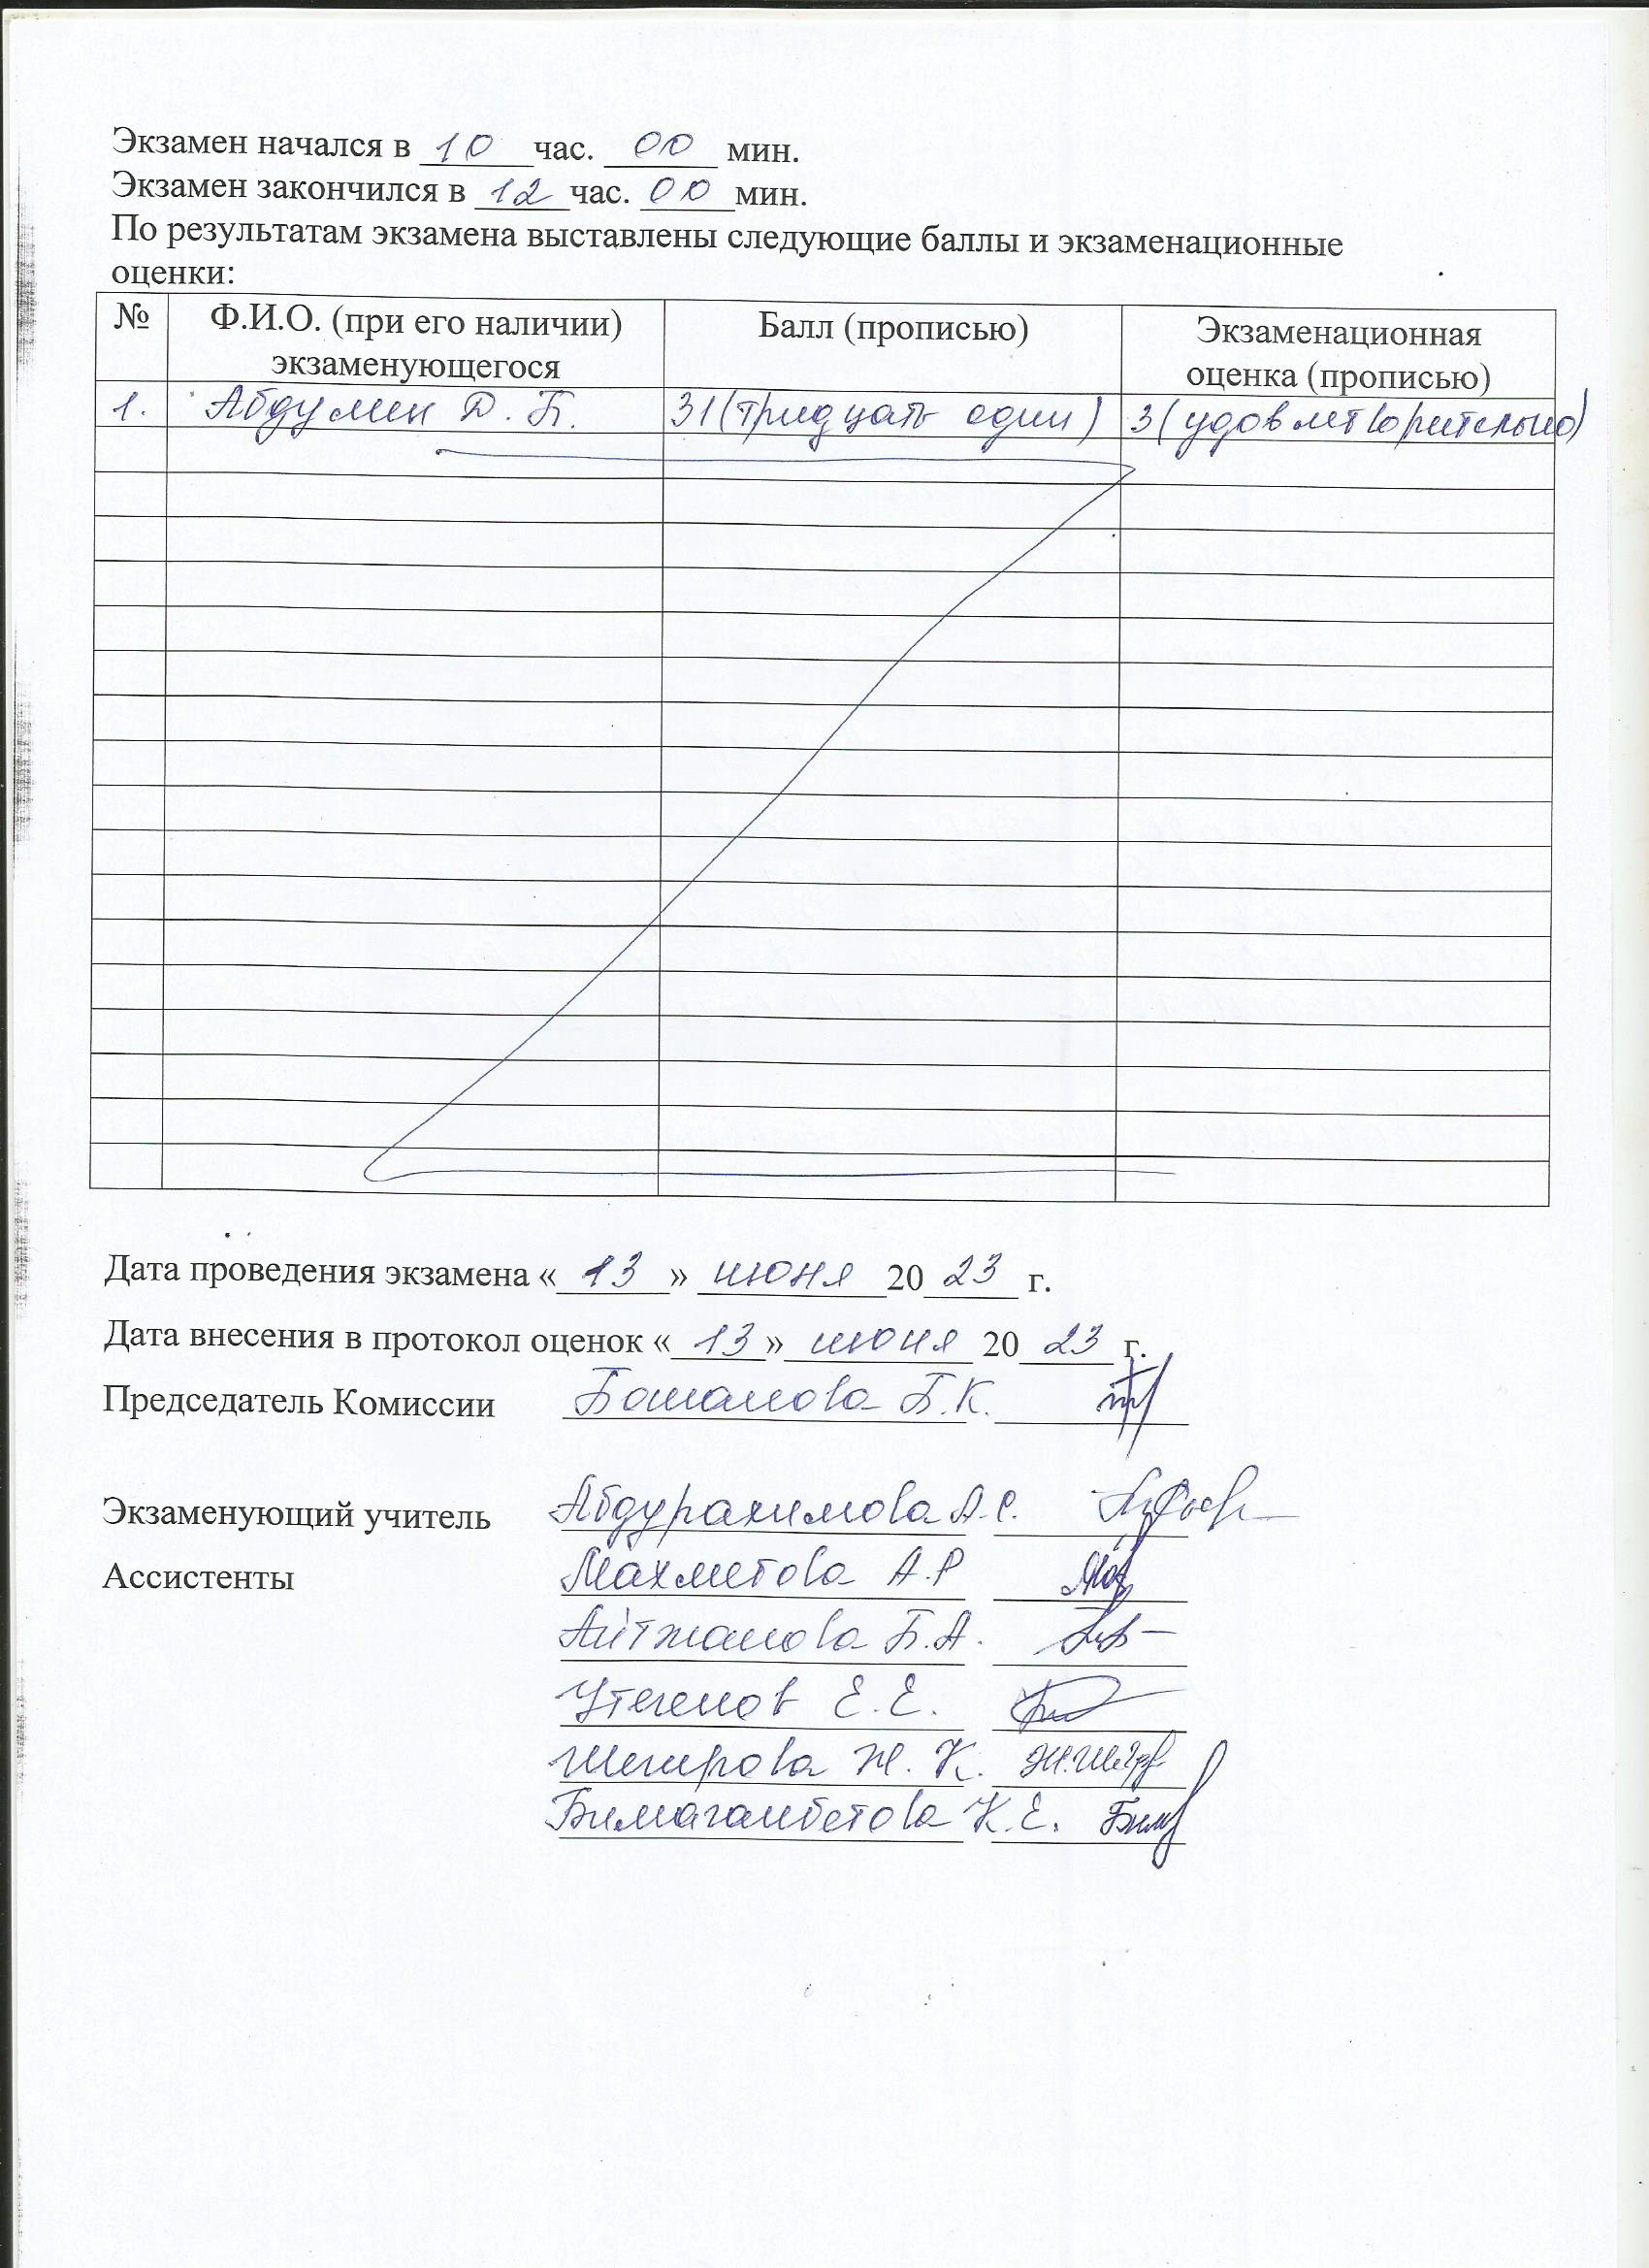 Экзамен начался в 10 час. 00 мин.
Экзамен закончился в 12 час. 00 мин.
По результатам экзамена выставлены следующие баллы и экзаменационные
оценки:
№ Ф.И.О. (при его наличии) экзаменующегося Балл (прописью) Экзаменационная оценка (прописью)
1. Абдумен Д. Б. 31 (тридцать один) 3 (удовлетворительно)
Дата проведения экзамена « 13 » июня 20 23 г.
Дата внесения в протокол оценок « 13 » июня 20 23 г.
Председатель Комиссии Боманова Б.К.
Экзаменующий учитель Абдурахимова А.С.
Ассистенты Махметова А.Р
Айтжанова Б.А.
Утегенов Е.Е.
Шегирова Ж.К.
Бимагамбетова К.Е.